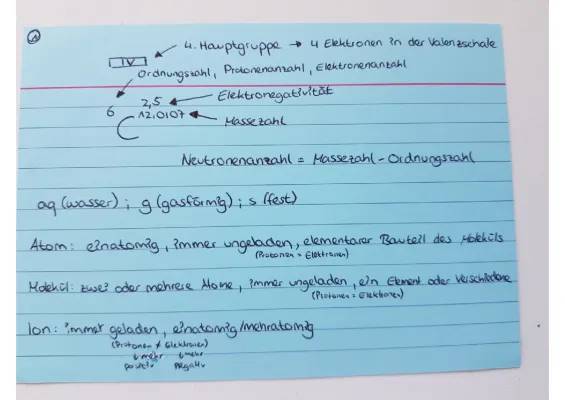 ①
4. Hauptgruppe → 4 Elektronen in der Valenzschale
IV
Ordnungszahl, Protonenanzahl, Elektronenanzahl
2,5 ← Elektronegativität
6
C 12,0107 ← Massezahl
Neutronenanzahl = Massezahl - Ordnungszahl
aq (wasser) ; g (gasförmig) ; s (fest)
Atom: einatomig, immer ungeladen, elementarer Bauteil des Moleküls
(Protonen = Elektronen)
Molekül: zwei oder mehrere Atome, immer ungeladen, ein Element oder verschiedene
(Protonen = Elektronen)
Ion: immer geladen, einatomig/mehratomig
(Protonen ≠ Elektronen)
↓ mehr ↓ mehr
positiv negativ